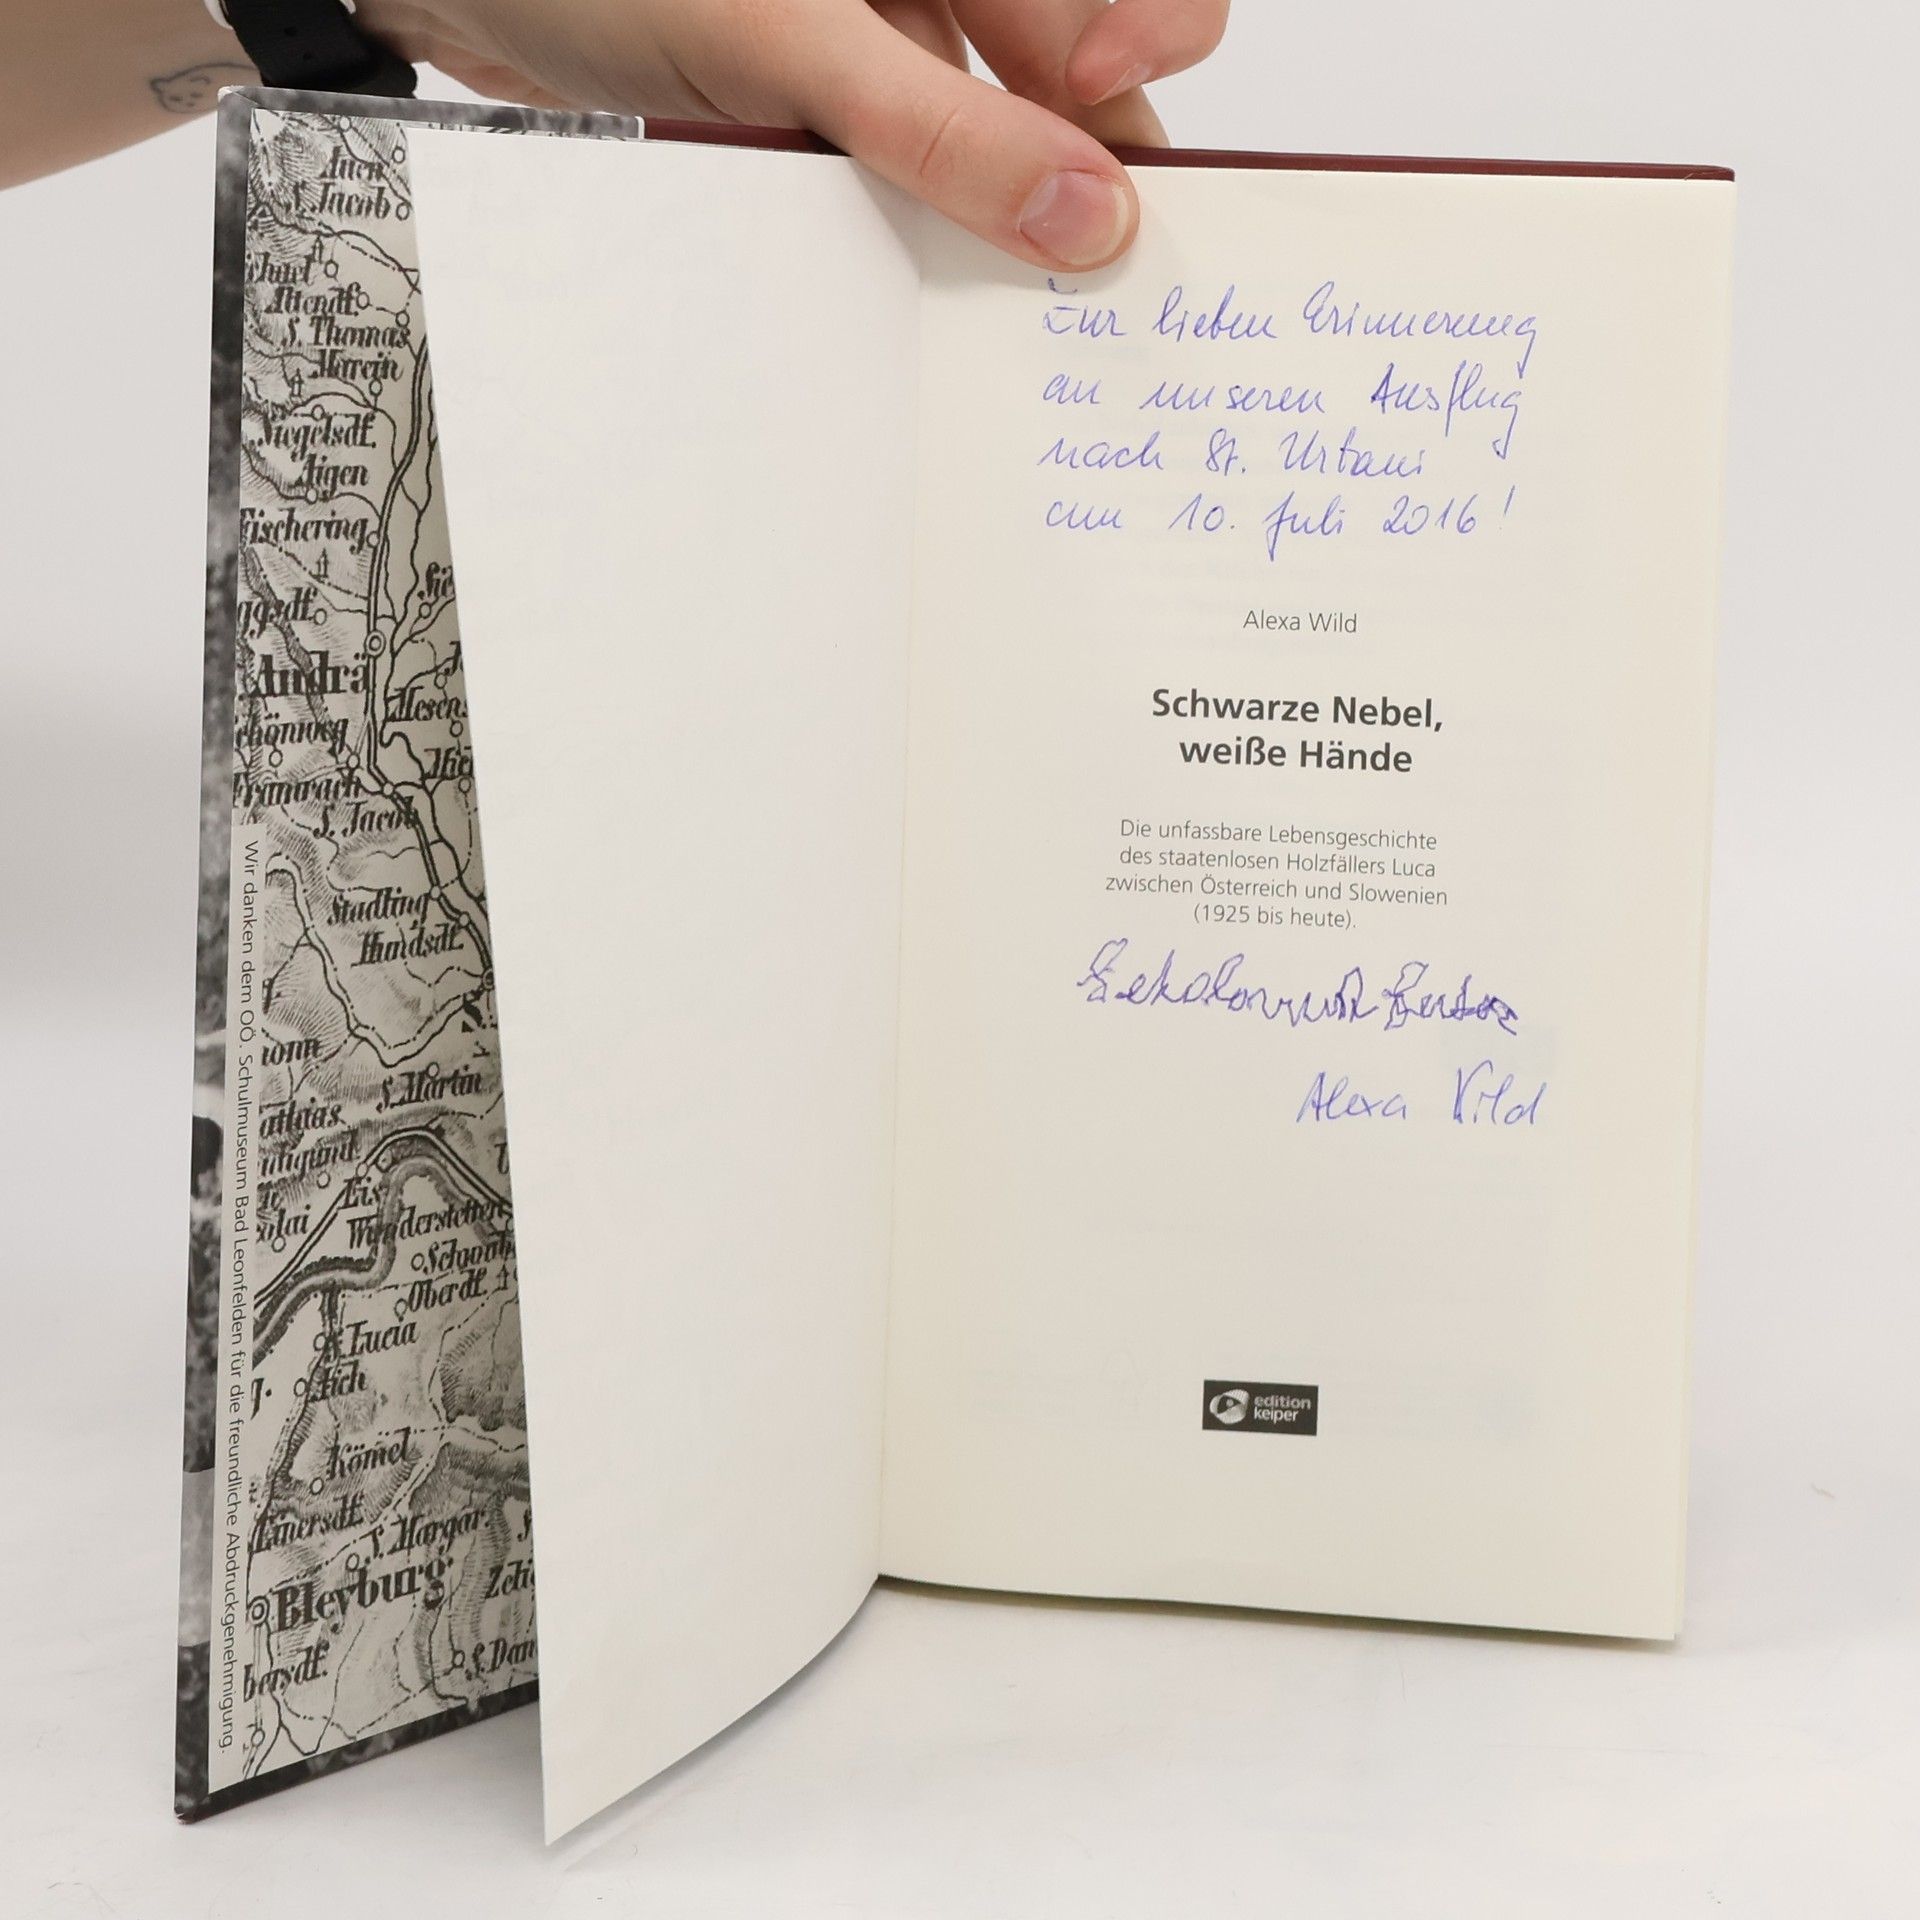 Auen
S. Jacob
Attendf.
S. Thomas
Marein
Siegelsdf.
Aigen
Fischering
ggsdf.
Andrä
chönweg
Framrach
S. Jacob
Stadling
Hundsdf.
S. Martin
Eis
Wunderstetten
Schwab
Oberdf.
S. Lucia
Aich
Kömel
S. Margar.
Bleyburg
bersdf.
Wir danken dem OÖ. Schulmuseum Bad Leonfelden für die freundliche Abdruckgenehmigung.
Zur lieben Erinnerung
an unseren Ausflug
nach St. Urbani
am 10. Juli 2016!
Alexa Wild
Schwarze Nebel,
weiße Hände
Die unfassbare Lebensgeschichte
des staatenlosen Holzfällers Luca
zwischen Österreich und Slowenien
(1925 bis heute).
Alexa Wild
edition
keiper